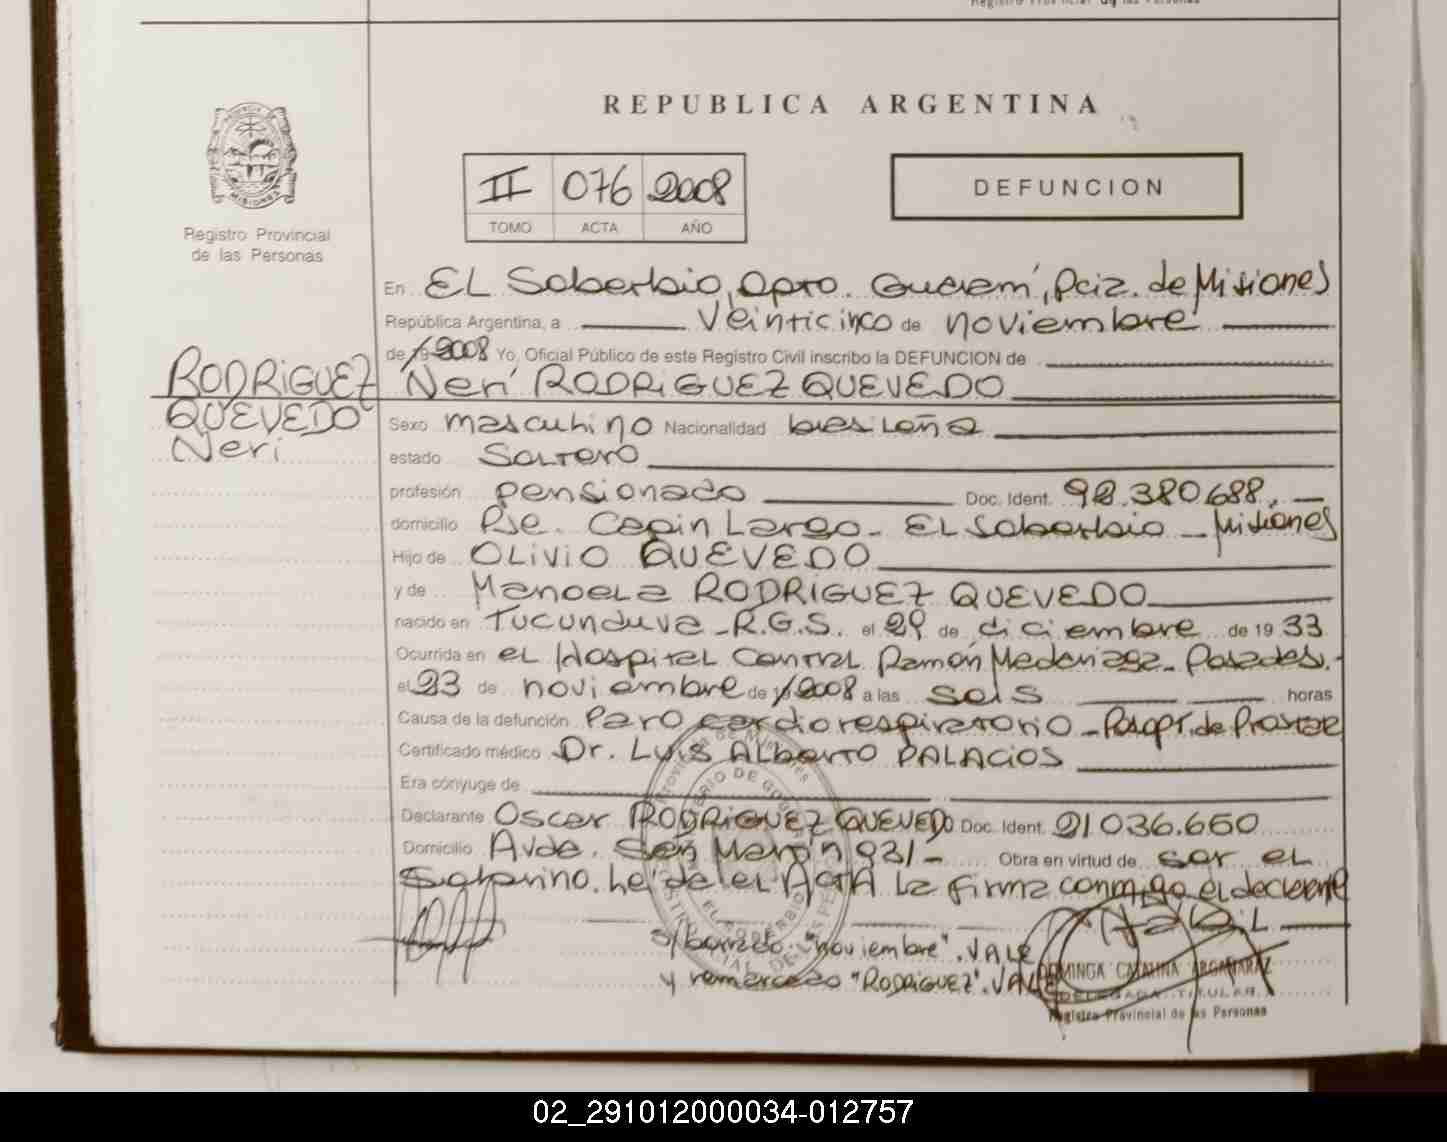 Registro Provincial de las Personas
REPUBLICA ARGENTINA
II 076 2008
TOMO ACTA AÑO
DEFUNCION
Registro Provincial
de las Personas
En EL Soberbio, Dpto. Guaraní, Pciz. de Misiones
República Argentina, a Veinticinco de noviembre
de 19 2008 Yo, Oficial Público de este Registro Civil inscribo la DEFUNCION de
Nerí RODRIGUEZ QUEVEDO
RODRIGUEZ
QUEVEDO
Neri
Sexo masculino Nacionalidad brasileña
estado Soltero
profesión pensionado Doc. Ident. 92.380.688.
domicilio Pje. Capin Largo - EL Soberbio - Misiones
Hijo de OLIVIO QUEVEDO
y de Manoela RODRIGUEZ QUEVEDO
nacido en Tucunduva - R.G.S. el 29 de diciembre de 1933
Ocurrida en el Hospital Central Ramón Madariaga - Posadas.
el 23 de noviembre de 19 2008 a las seis horas
Causa de la defunción Paro cardiorespiratorio - de Prostata
Certificado médico Dr. Luis Alberto PALACIOS
Era cónyuge de
Declarante Oscar RODRIGUEZ QUEVEDO Doc. Ident. 21.036.650
Domicilio Avda. San Martín 921 - Obra en virtud de ser el
Sobrino. leída el ACTA la firma conmigo el declarante
s/borrado: "noviembre". VALE
y remarcado "RODRIGUEZ". VALE
DOMINGA CATALINA ARGAÑARAZ
DELEGADA TITULAR
Registro Provincial de las Personas
02_291012000034-012757